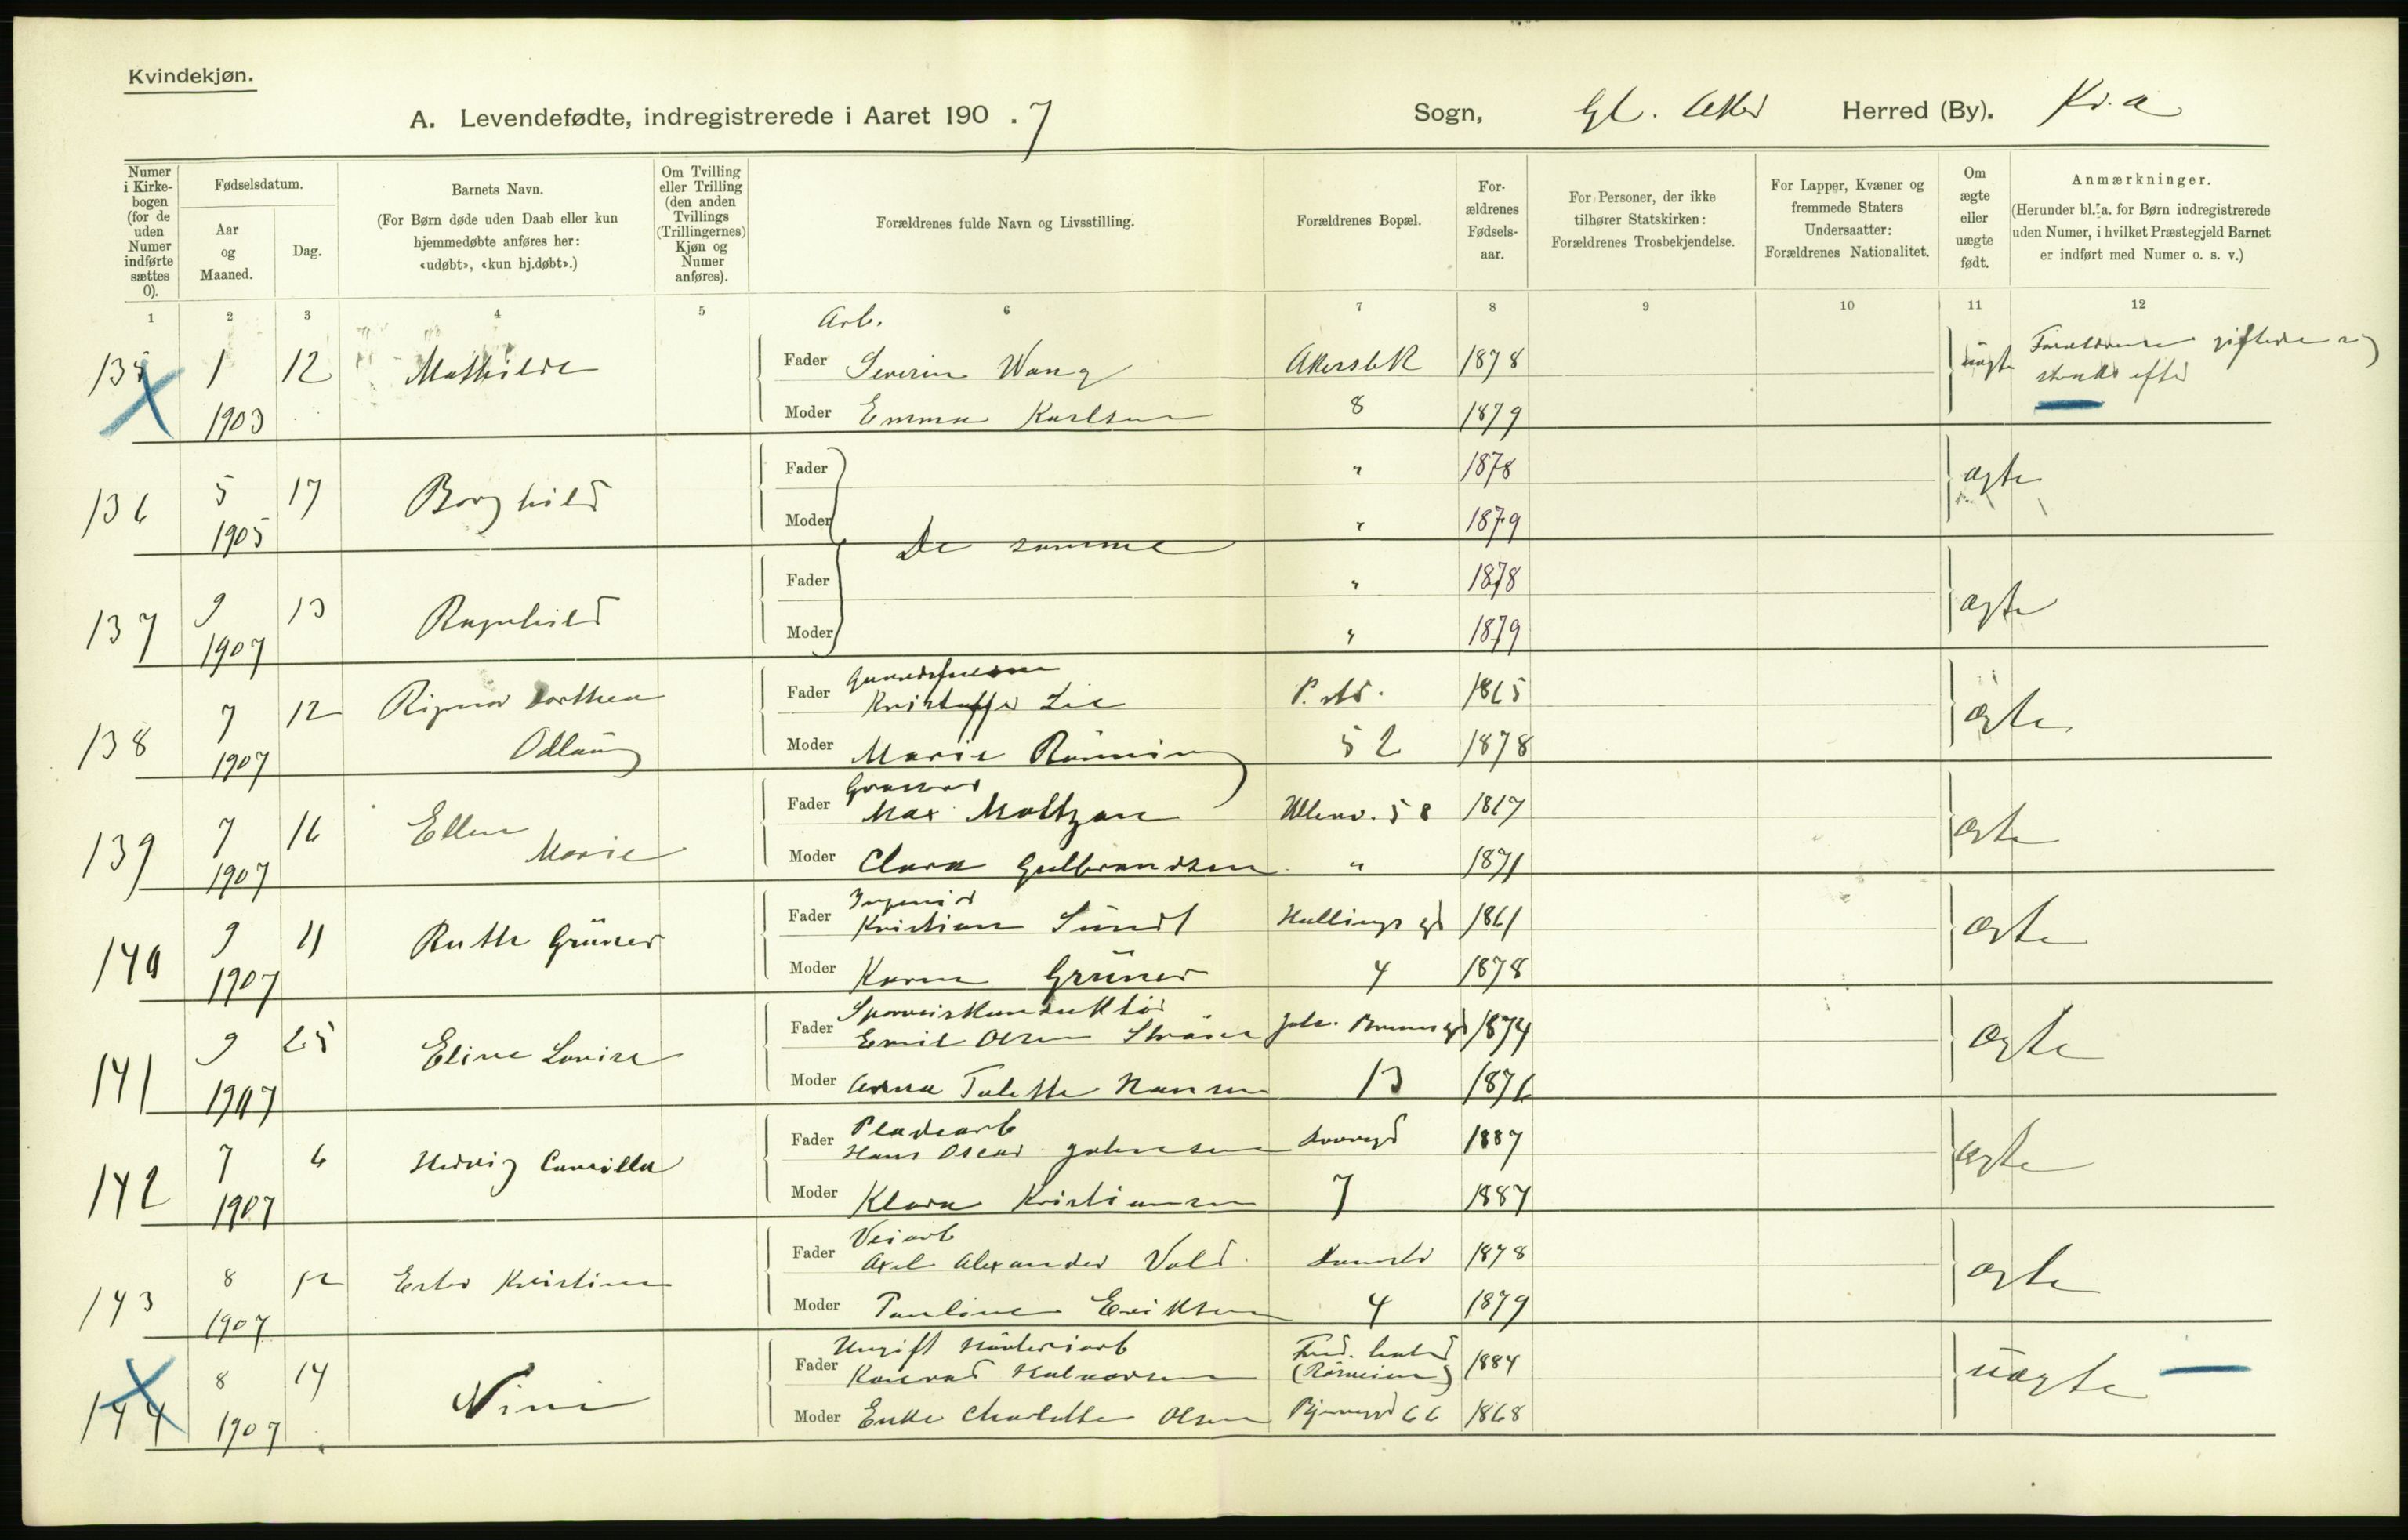 Kvindekjøn.
A. Levendefødte, indregistrerede i Aaret 190 . 7 Sogn, Gl. Aker Herred (By). Kr.a
Numer i Kirkebogen (for de uden Numer indførte sættes 0).
Fødselsdatum.
Aar og Maaned.
Dag.
Barnets Navn.
(For Børn døde uden Daab eller kun hjemmedøbte anføres her: «udøbt», «kun hj.døbt».)
Om Tvilling eller Trilling (den anden Tvillings (Trillingernes) Kjøn og Numer anføres).
Forældrenes fulde Navn og Livsstilling.
Forældrenes Bopæl.
Forældrenes Fødselsaar.
For Personer, der ikke tilhører Statskirken: Forældrenes Trosbekjendelse.
For Lapper, Kvæner og fremmede Staters Undersaatter: Forældrenes Nationalitet.
Om ægte eller uægte født.
Anmærkninger.
(Herunder bl. a. for Børn indregistrerede uden Numer, i hvilket Præstegjeld Barnet er indført med Numer o. s. v.)
1 2 3 4 5 6 7 8 9 10 11 12
135 1 1903 12 Mathilde
Arb.
Fader Severin Wang Akersbk 1878 uægte Forældrene giftede sig
Moder Emma Karlsen 8 1879 straks efter
136 5 1905 17 Borghild
Fader " 1878 ægte
Moder " 1879
De samme
137 9 1907 13 Ragnhild
Fader " 1878 ægte
Moder " 1879
138 7 1907 12 Dorthea Odlaug
Fader Kristoffer Lie P. 1865 ægte
Moder Marie Rønning 52 1878
139 7 1907 16 Ellen Marie
Fader Max Moltzau Ullev. 58 1867 ægte
Moder Clara Gulbrandsen " 1871
140 9 1907 11 Ruth Grüner
Ingeniør
Fader Kristian Sundt Hallings gd 1861 ægte
Moder Karen Grüner 4 1878
141 9 1907 25 Eline Lovise
Sporveiskonduktør
Fader Emil Olsen Joh. Bruns gd 1874 ægte
Moder Anna Talette Hansen 13 1876
142 7 1907 6 Hedvig Camilla
Pladearb
Fader Hans Oscar Johnsen 1887 ægte
Moder Klara Kristiansen 7 1887
143 8 1907 12 Ester Kristine
Veiarb
Fader Axel Alexander Vold 1878 ægte
Moder Pauline Eriksen 4 1879
144 8 1907 14 Nini
Ugift
Fader Konrad Halvorsen Fred. 1884 uægte
Moder Enke Charlotte Olsen 66 1868